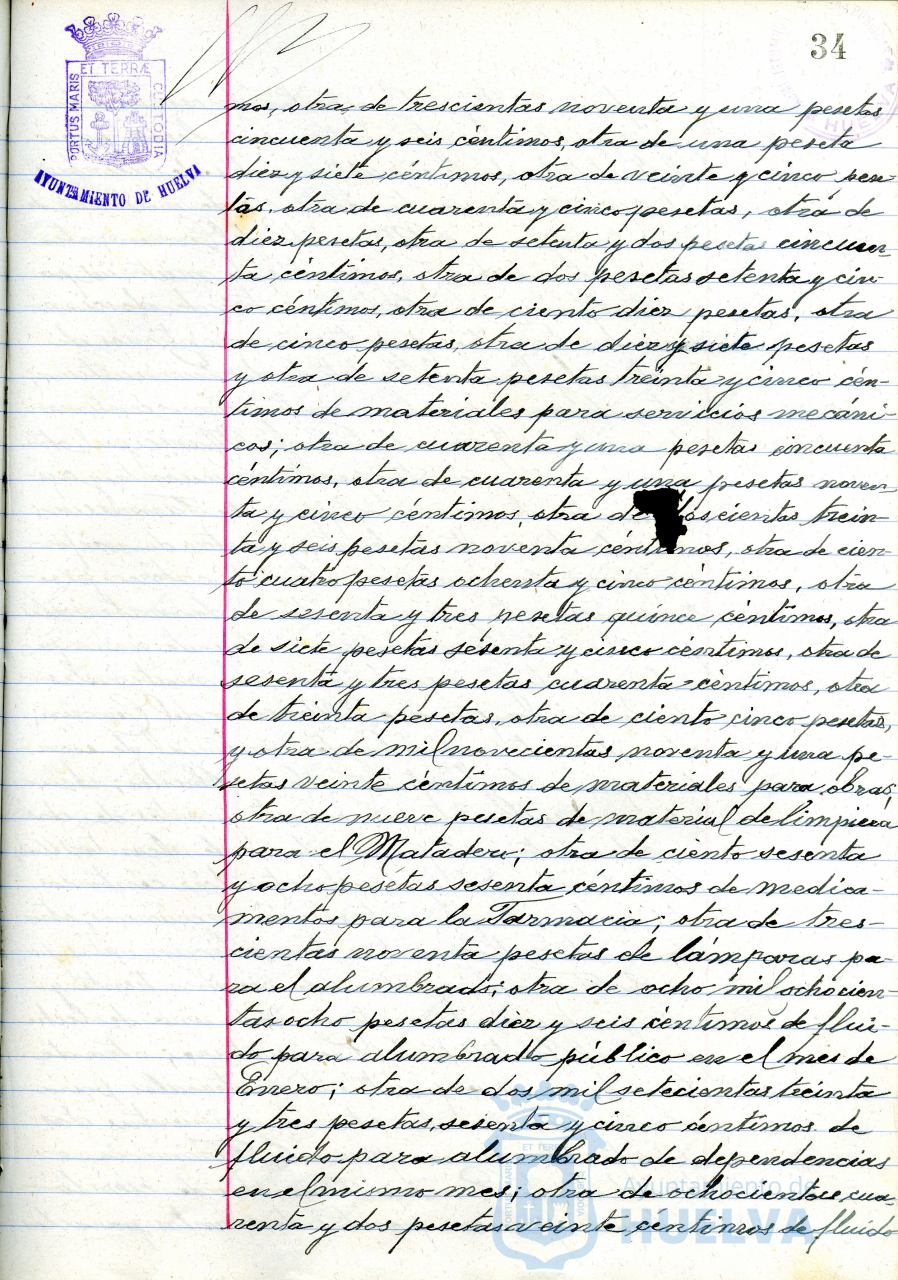 34
PORTUS MARIS ET TERRÆ CUSTODIA
AYUNTAMIENTO DE HUELVA
HUELVA
mos, otra, de trescientas noventa y una pesetas
cincuenta y seis céntimos, otra de una peseta
diez y siete céntimos, otra de veinte y cinco pese-
tas, otra de cuarenta y cinco pesetas, otra de
diez pesetas, otra de setenta y dos pesetas cincuen-
ta céntimos, otra de dos pesetas setenta y cin-
co céntimos, otra de ciento diez pesetas, otra
de cinco pesetas, otra de diez y siete pesetas
y otra de setenta pesetas treinta y cinco cén-
timos de materiales para servicios mecáni-
cos; otra de cuarenta y una pesetas cincuenta
céntimos, otra de cuarenta y una pesetas noven-
ta y cinco céntimos, otra de doscientas trein-
ta y seis pesetas noventa céntimos, otra de cien-
to cuatro pesetas ochenta y cinco céntimos, otra
de sesenta y tres pesetas quince céntimos, otra
de siete pesetas sesenta y cinco céntimos, otra de
sesenta y tres pesetas cuarenta céntimos, otra
de treinta pesetas, otra de ciento cinco pesetas,
y otra de mil novecientas noventa y una pe-
setas veinte céntimos de materiales para obras;
otra de nueve pesetas de material de limpieza
para el Matadero; otra de ciento sesenta
y ocho pesetas sesenta céntimos de medica-
mentos para la Farmacia; otra de tres-
cientas noventa pesetas de lámparas pa-
ra el alumbrado; otra de ocho mil ochocien-
tas ocho pesetas diez y seis céntimos de flui-
do para alumbrado público en el mes de
Enero; otra de dos mil setecientas treinta
y tres pesetas, sesenta y cinco céntimos de
fluido para alumbrado de dependencias
en el mismo mes; otra de ochocientas cua-
renta y dos pesetas veinte céntimos de fluido
Ayuntamiento de
HUELVA